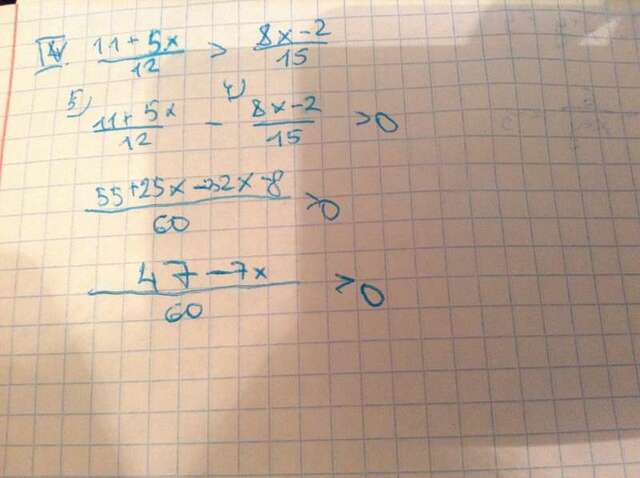 IV. (11+5x)/12 > (8x-2)/15
5) (11+5x)/12 - 4) (8x-2)/15 >0
(55+25x-32x-8)/60 >0
(47-7x)/60 >0